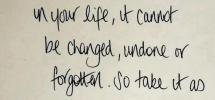 in your life, it cannot
be changed, undone or
forgotten. So take it as